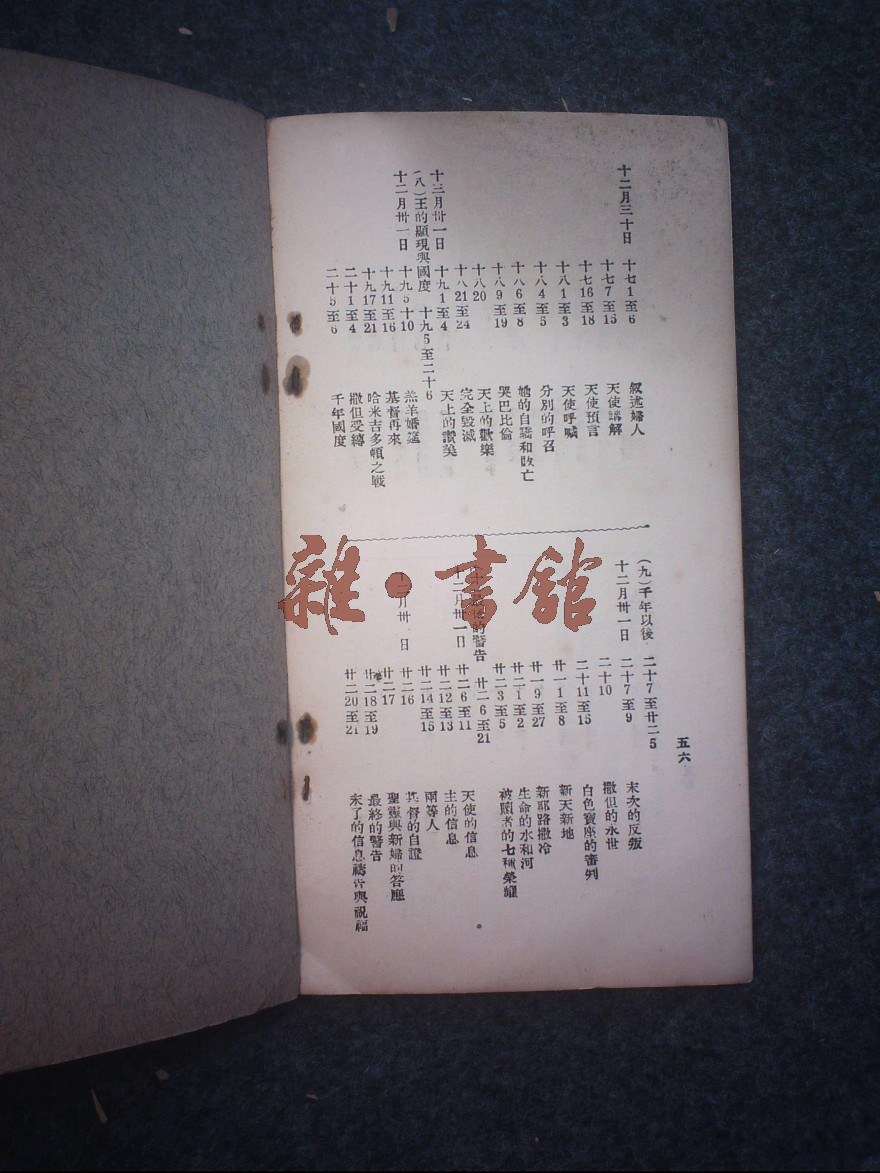 十二月三十日 十七1至6 敘述婦人
十七7至15 天使講解
十七16至18 天使預言
十八1至3 天使呼喊
十八4至5 分別的呼召
十八6至8 她的自驕和敗亡
十八9至19 哭巴比倫
十八20 天上的歡樂
十八21至24 完全毀滅
十二月卅一日 十九1至4 天上的讚美
（八）王的顯現與國度 十九5至二十6
十二月卅一日 十九5十10 羔羊婚筵
十九11至16 基督再來
十九17至21 哈米吉多頓之戰
二十1至4 撒但受縛
二十5至6 千年國度
五六
（九）千年以後 二十7至廿二5
十二月卅一日 二十7至9 末次的反叛
二十10 撒但的永世
二十11至15 白色寶座的審判
廿一1至8 新天新地
廿一9至27 新耶路撒冷
廿二1至2 生命的水和河
廿二3至5 被贖者的七種榮耀
的警告 廿二6至21
十二月卅一日 廿二6至11 天使的信息
廿二12至13 主的信息
廿二14至15 兩等人
月卅 日 廿二16 基督的自證
廿二17 聖靈與新婦的答應
廿二18至19 最終的警告
廿二20至21 末了的信息禱告與祝福
雜·書館